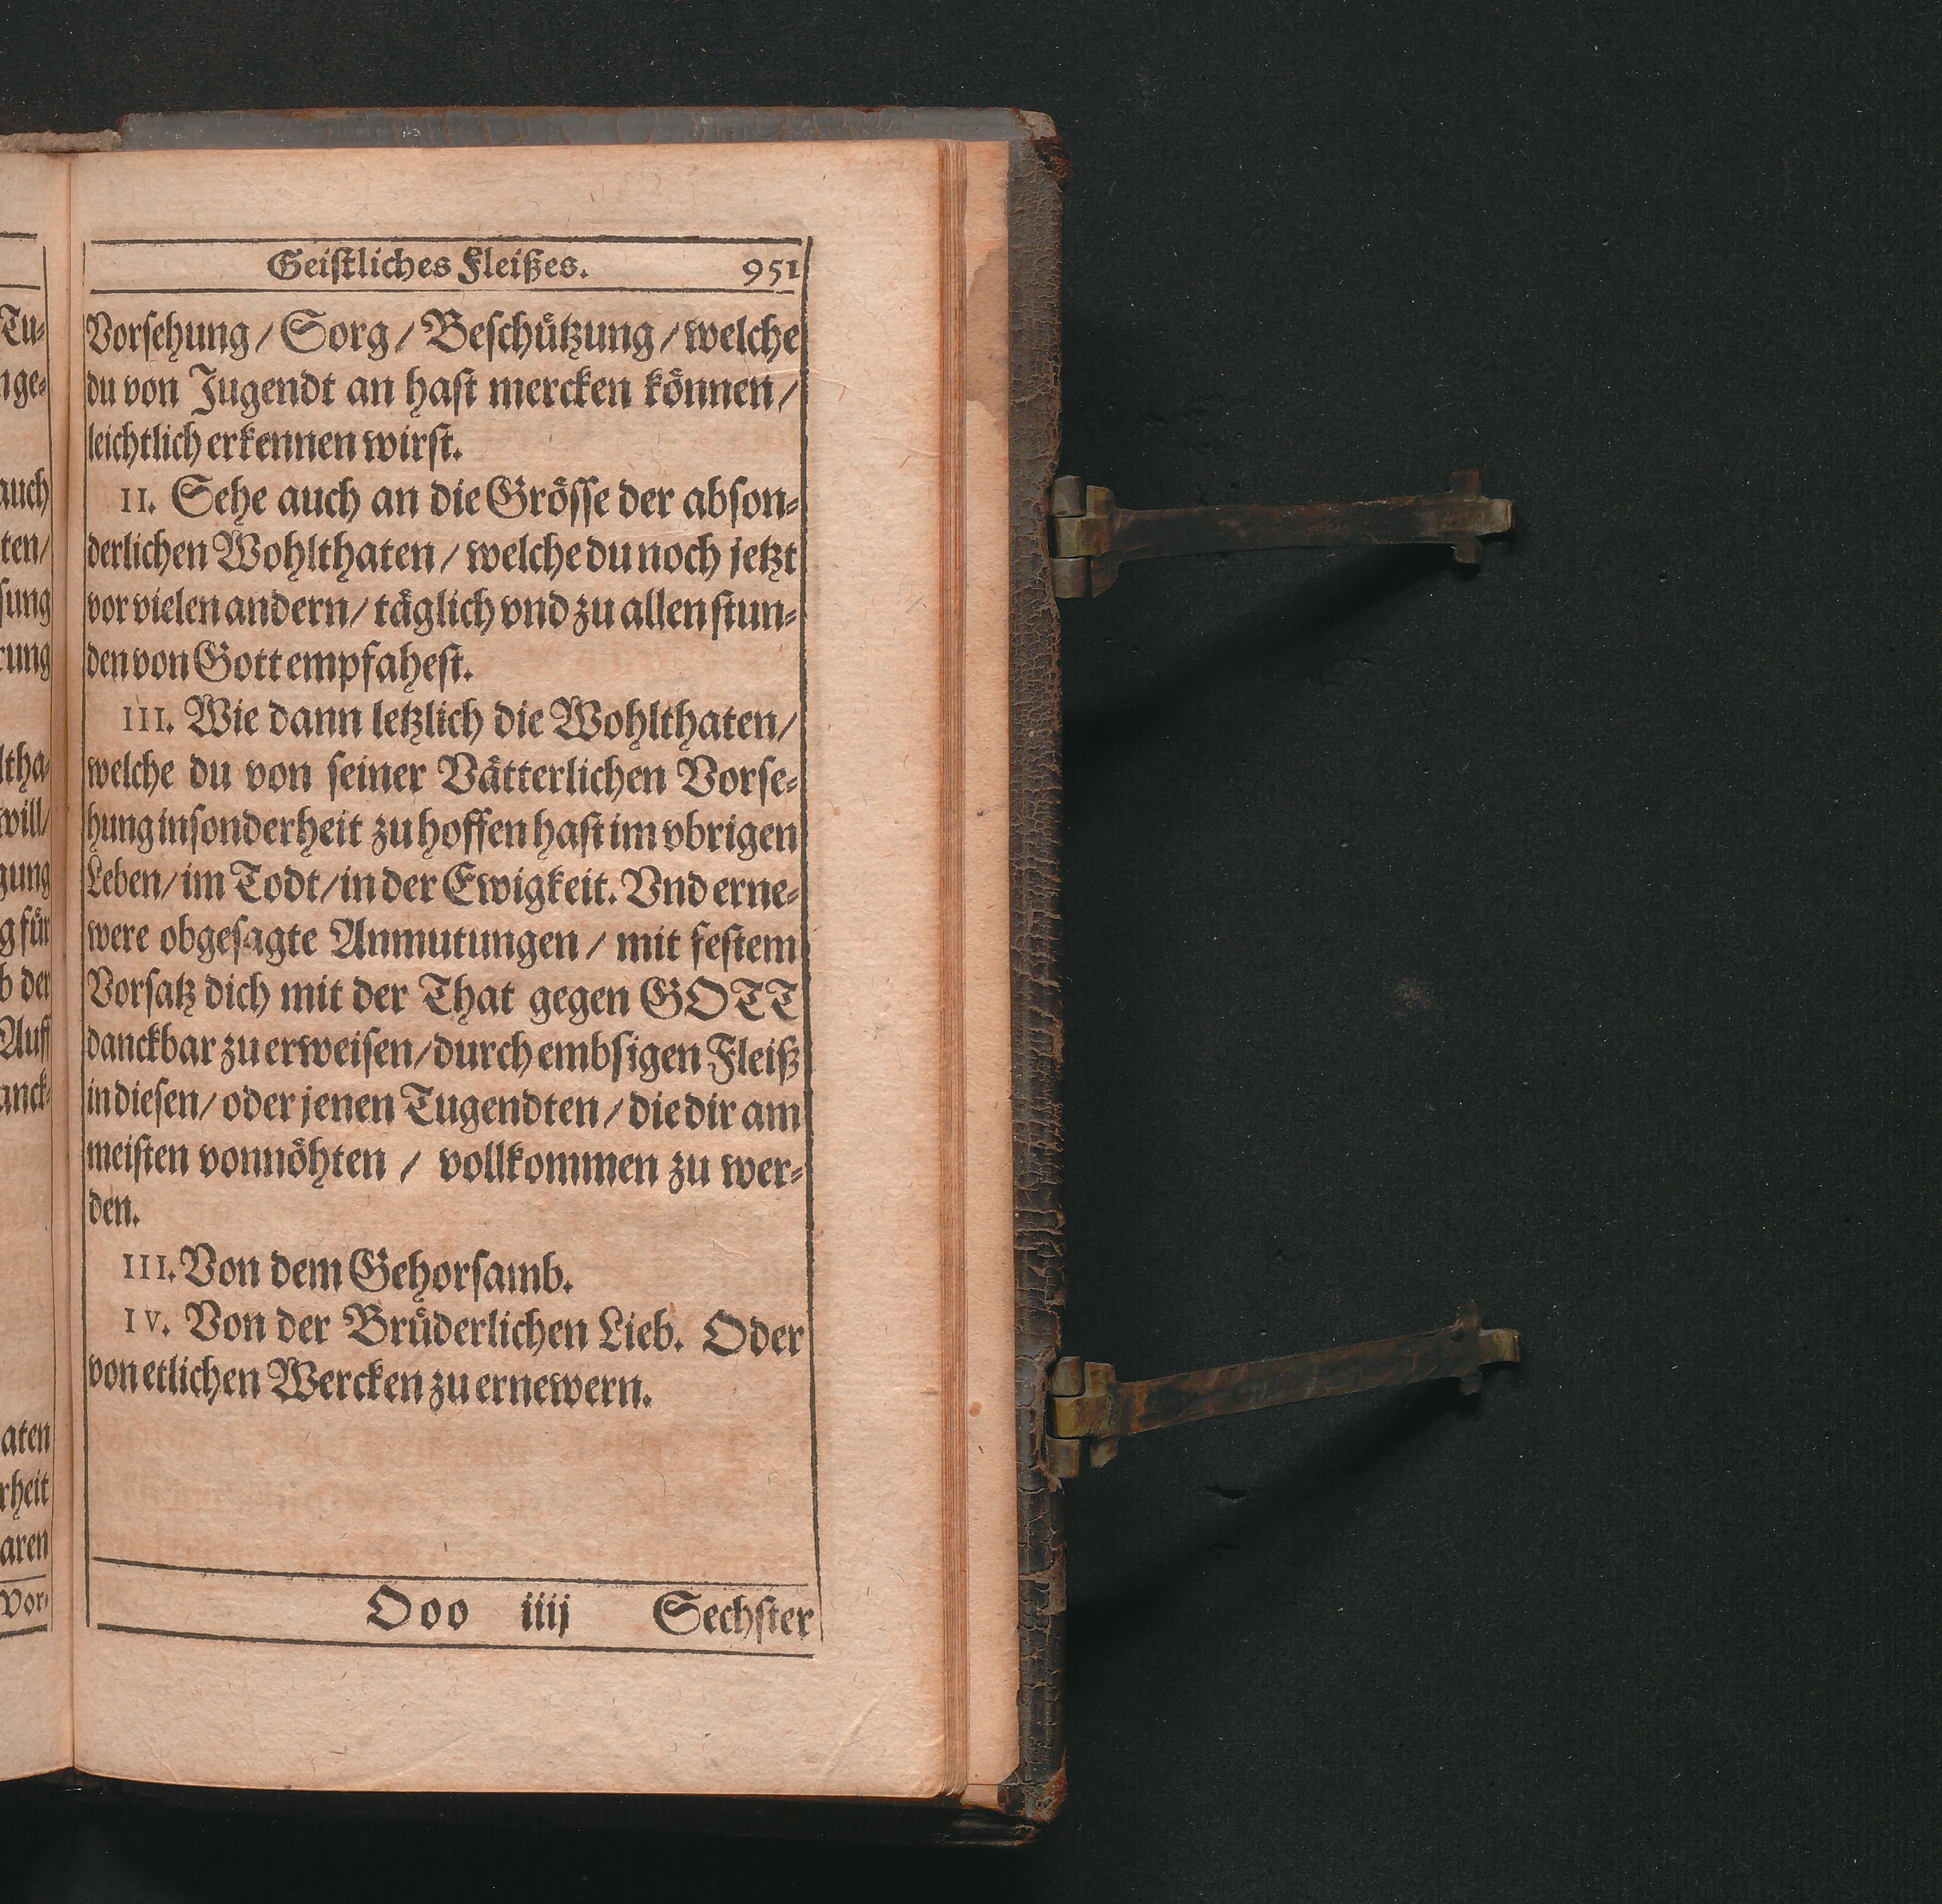 Geistliches Fleißes. 951
Vorsehung / Sorg / Beschützung / welche
du von Jugendt an hast mercken können /
leichtlich erkennen wirst.
II. Sehe auch an die Grösse der abson-
derlichen Wohlthaten / welche du noch jetzt
vor vielen andern / täglich vnd zu allen stun-
den von Gott empfahest.
III. Wie dann letzlich die Wohlthaten /
welche du von seiner Vätterlichen Vorse-
hung insonderheit zu hoffen hast im vbrigen
Leben / im Todt / in der Ewigkeit. Vnd erne-
were obgesagte Anmutungen / mit festem
Vorsatz dich mit der That gegen GOTT
danckbar zu erweisen / durch embsigen Fleiß
in diesen / oder jenen Tugendten / die dir am
meisten vonnöhten / vollkommen zu wer-
den.
III. Von dem Gehorsamb.
IV. Von der Brüderlichen Lieb. Oder
von etlichen Wercken zu ernewern.
Ooo iiij Sechster